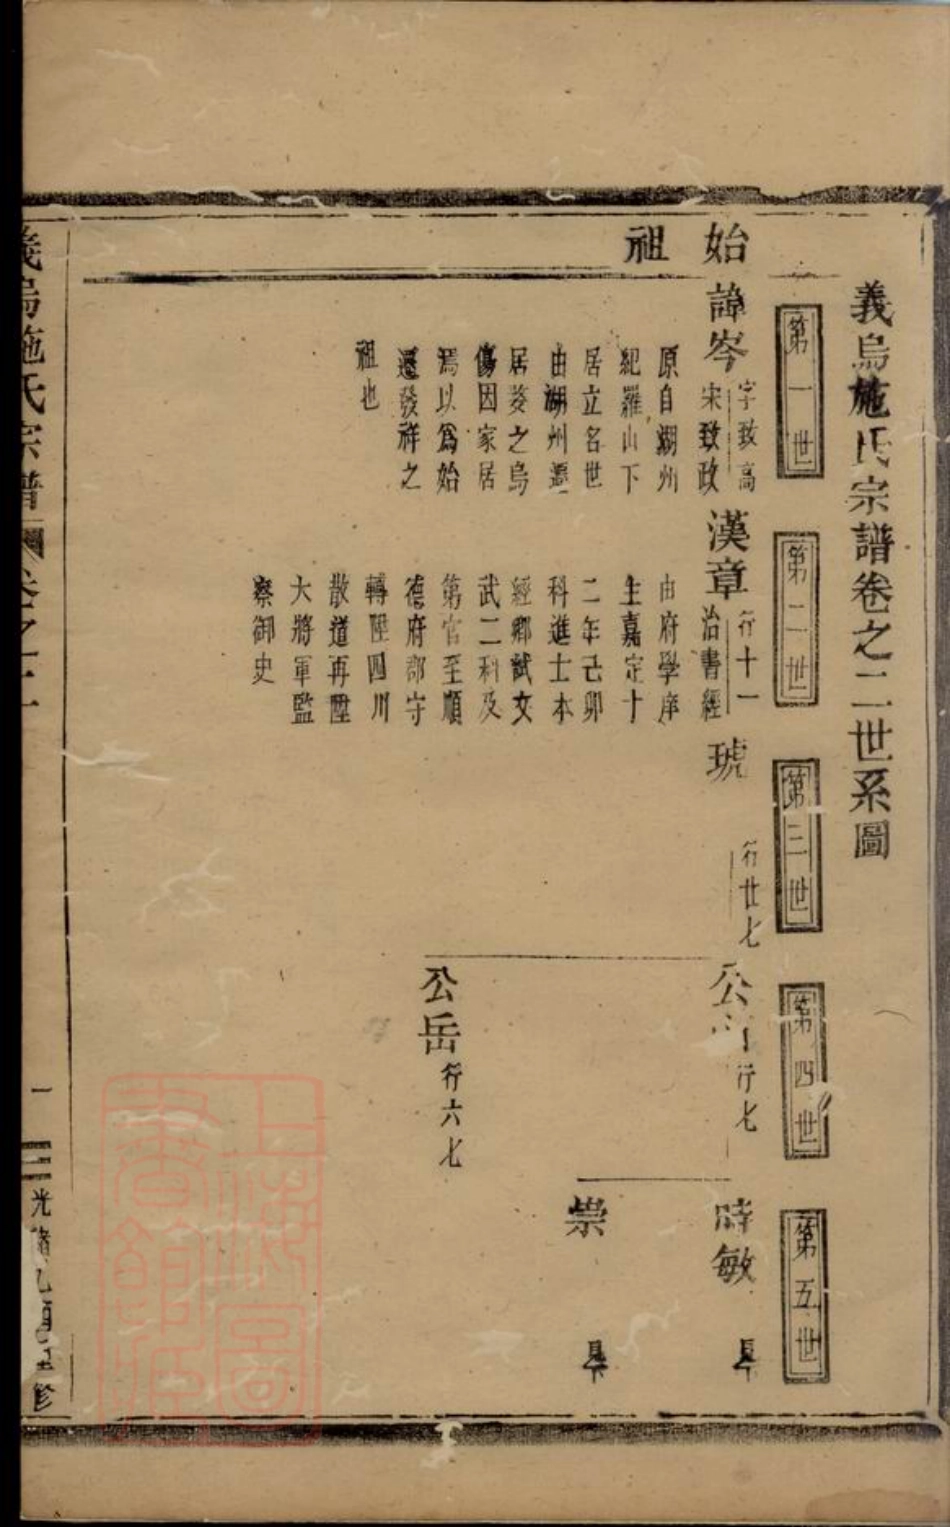 義烏施氏宗譜卷之二世系圖
第一世
第二世
第三世
第四世
第五世
始祖
諱岑
字致高
宋致政
原自湖州
紀羅山下
居立名世
由湖州遷
居婺之烏
傷因家居
焉以爲始
遷發祥之
祖也
漢章
行十一
治書經
由府學庠
生嘉定十
二年己卯
科進士本
經鄉試文
武二科及
第官至順
德府郡守
轉陞四川
散道再陞
大將軍監
察御史
琥
行廿七
公
行七
公岳
行六七
時敏
崇
義烏施氏宗譜
卷之二
一
上海圖書館藏